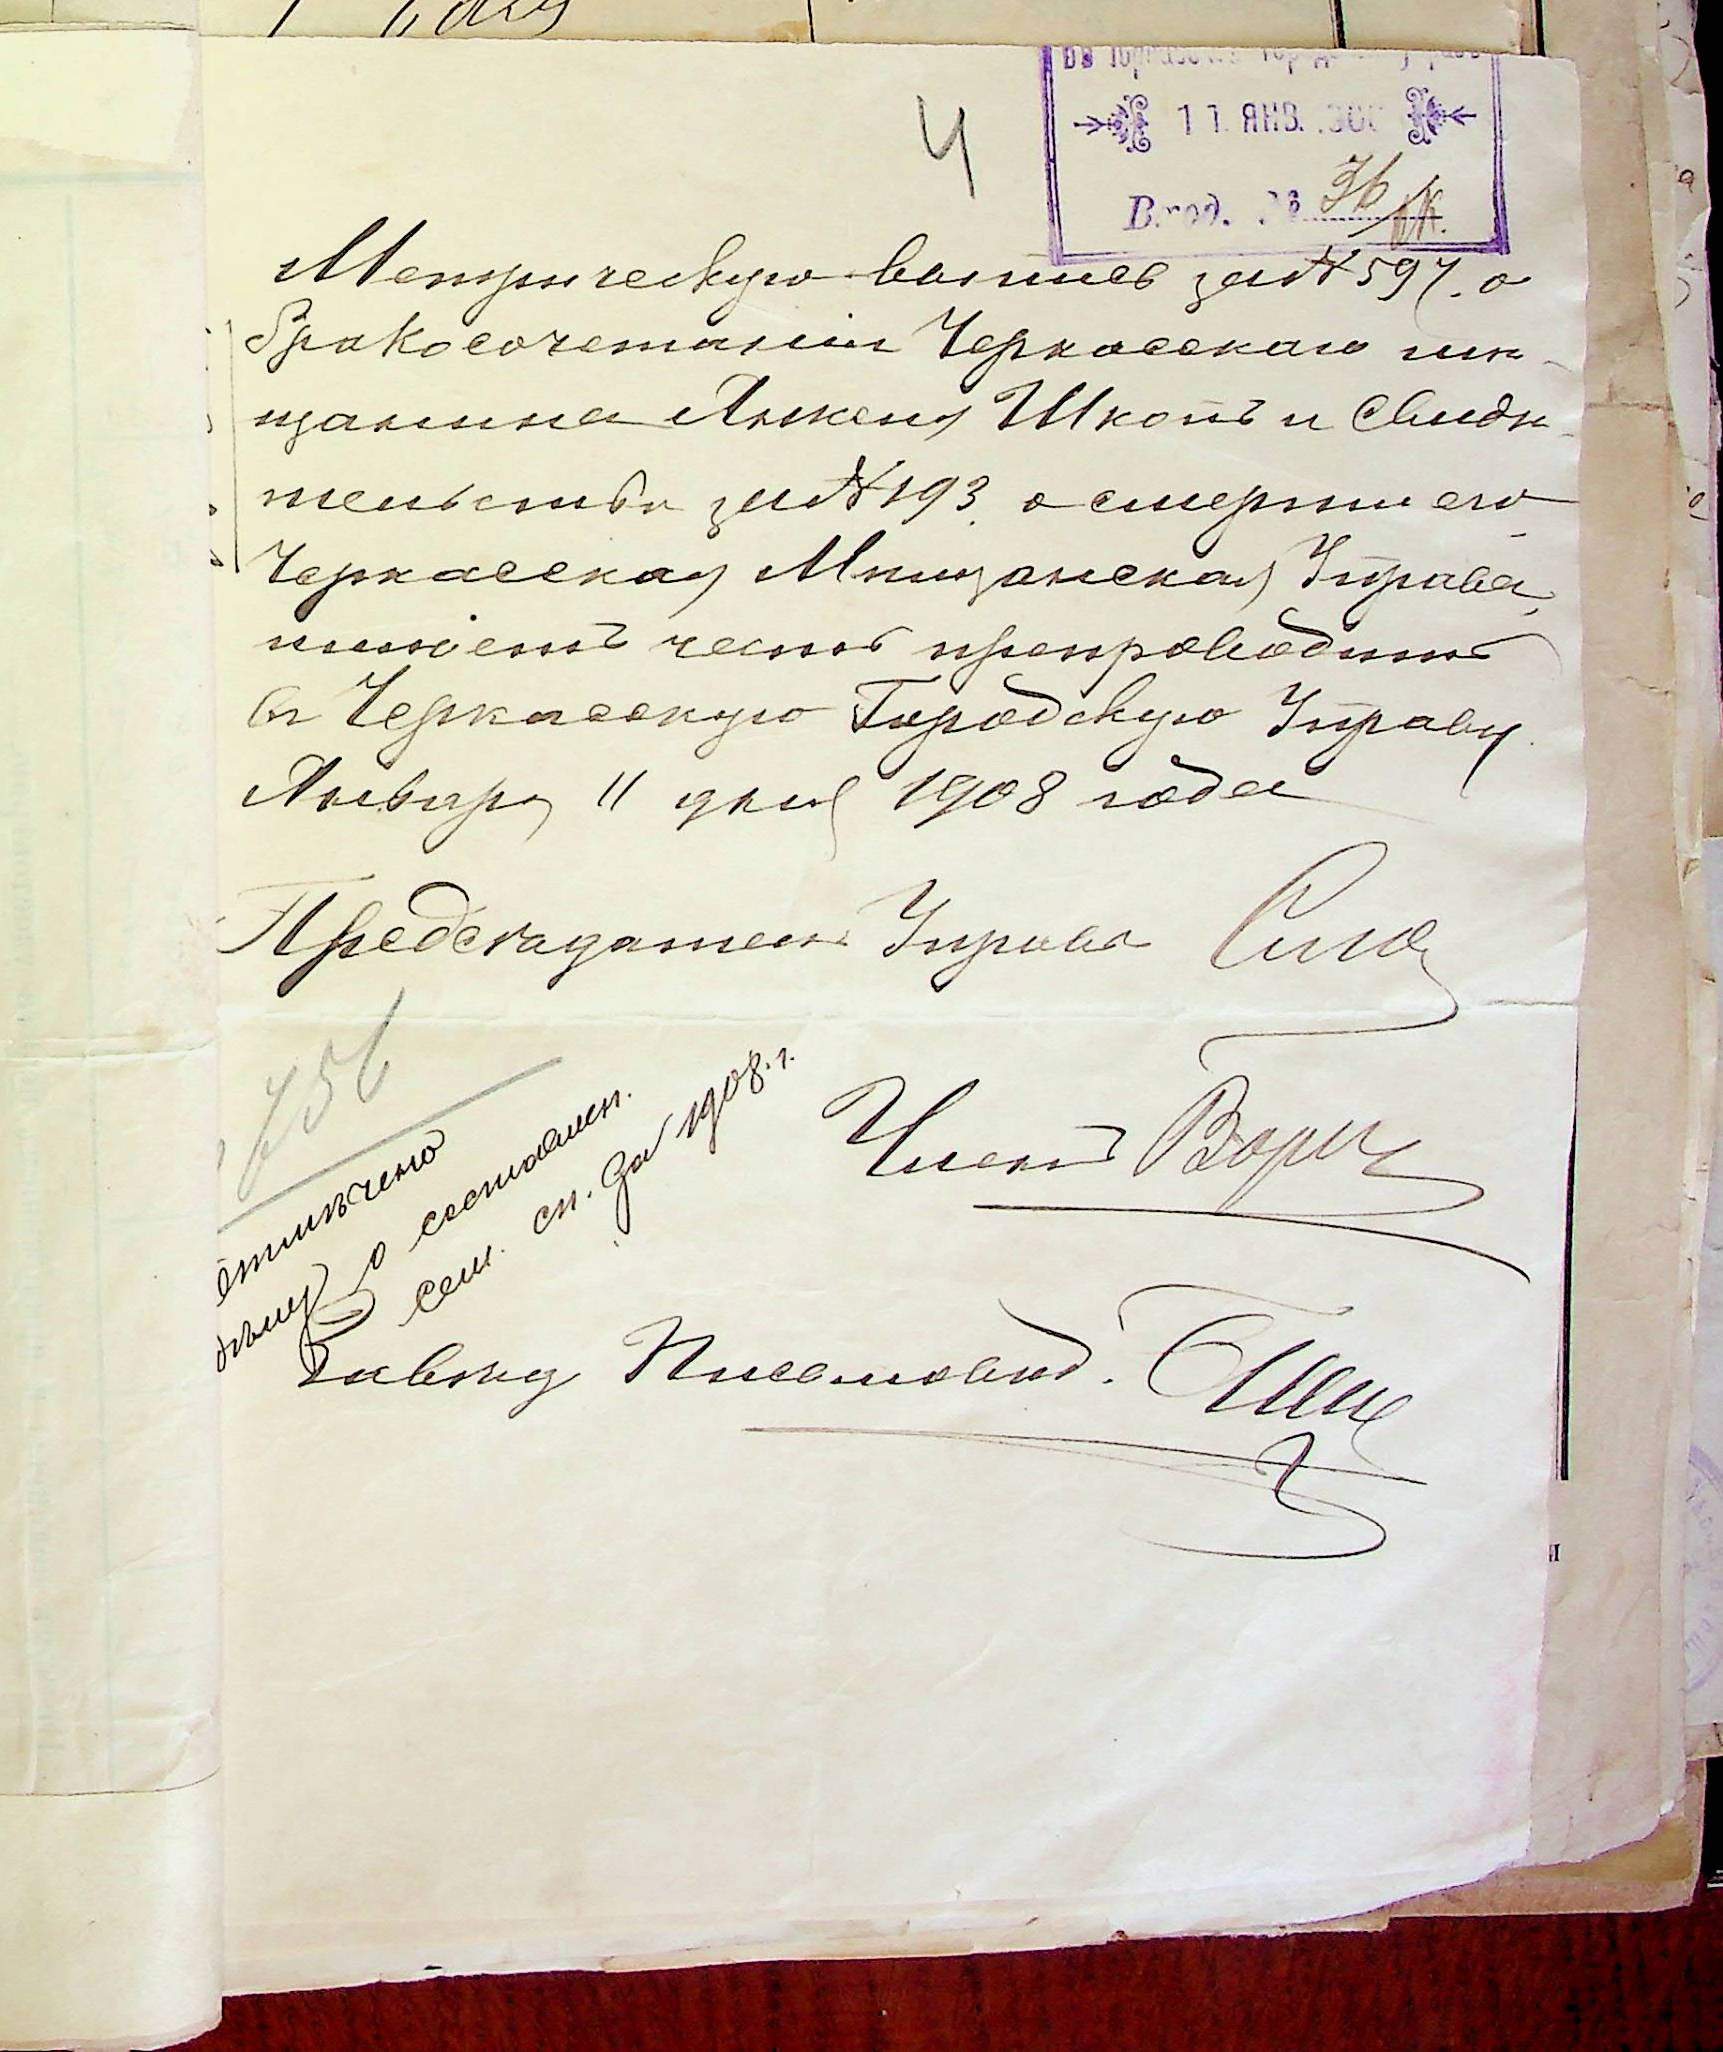 въ Черкасскую Городскую Управу
11 ЯНВ. 190
Вход. № 36
4
Метрическую выпись за № 597. о
бракосочетаніи Черкасскаго мѣ-
щанина Янкеля Шкопъ и свидѣ-
тельство за № 193. о смерти его
Черкасская Мѣщанская Управа,
имѣетъ честь препроводить
въ Черкасскую Городскую Управу
Января 11 дня 1908 года
Предсѣдатель Управы
756
Членъ
отмѣчено
о составлен.
сем. сп. за 1908. г.
Письмовод.